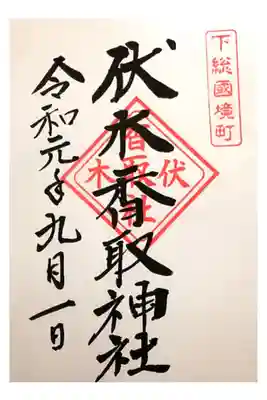 下総國境町
伏木香取神社
伏木
香取社
令和元年九月一日